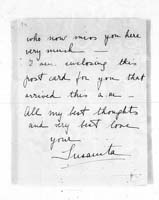 who now miss you here
very much —
I am enclosing this
post card for you that
arrived this a.m. —
All my best thoughts
and very best love
your